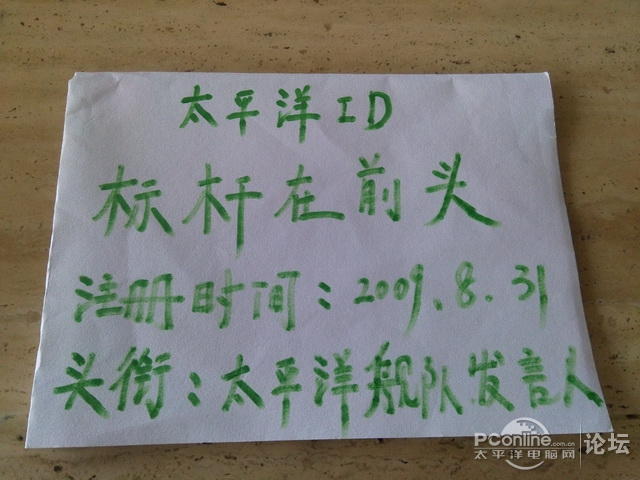 太平洋ID
标杆在前头
注册时间：2009.8.31
头衔：太平洋舰队发言人
PConline.com.cn
太平洋电脑网
论坛